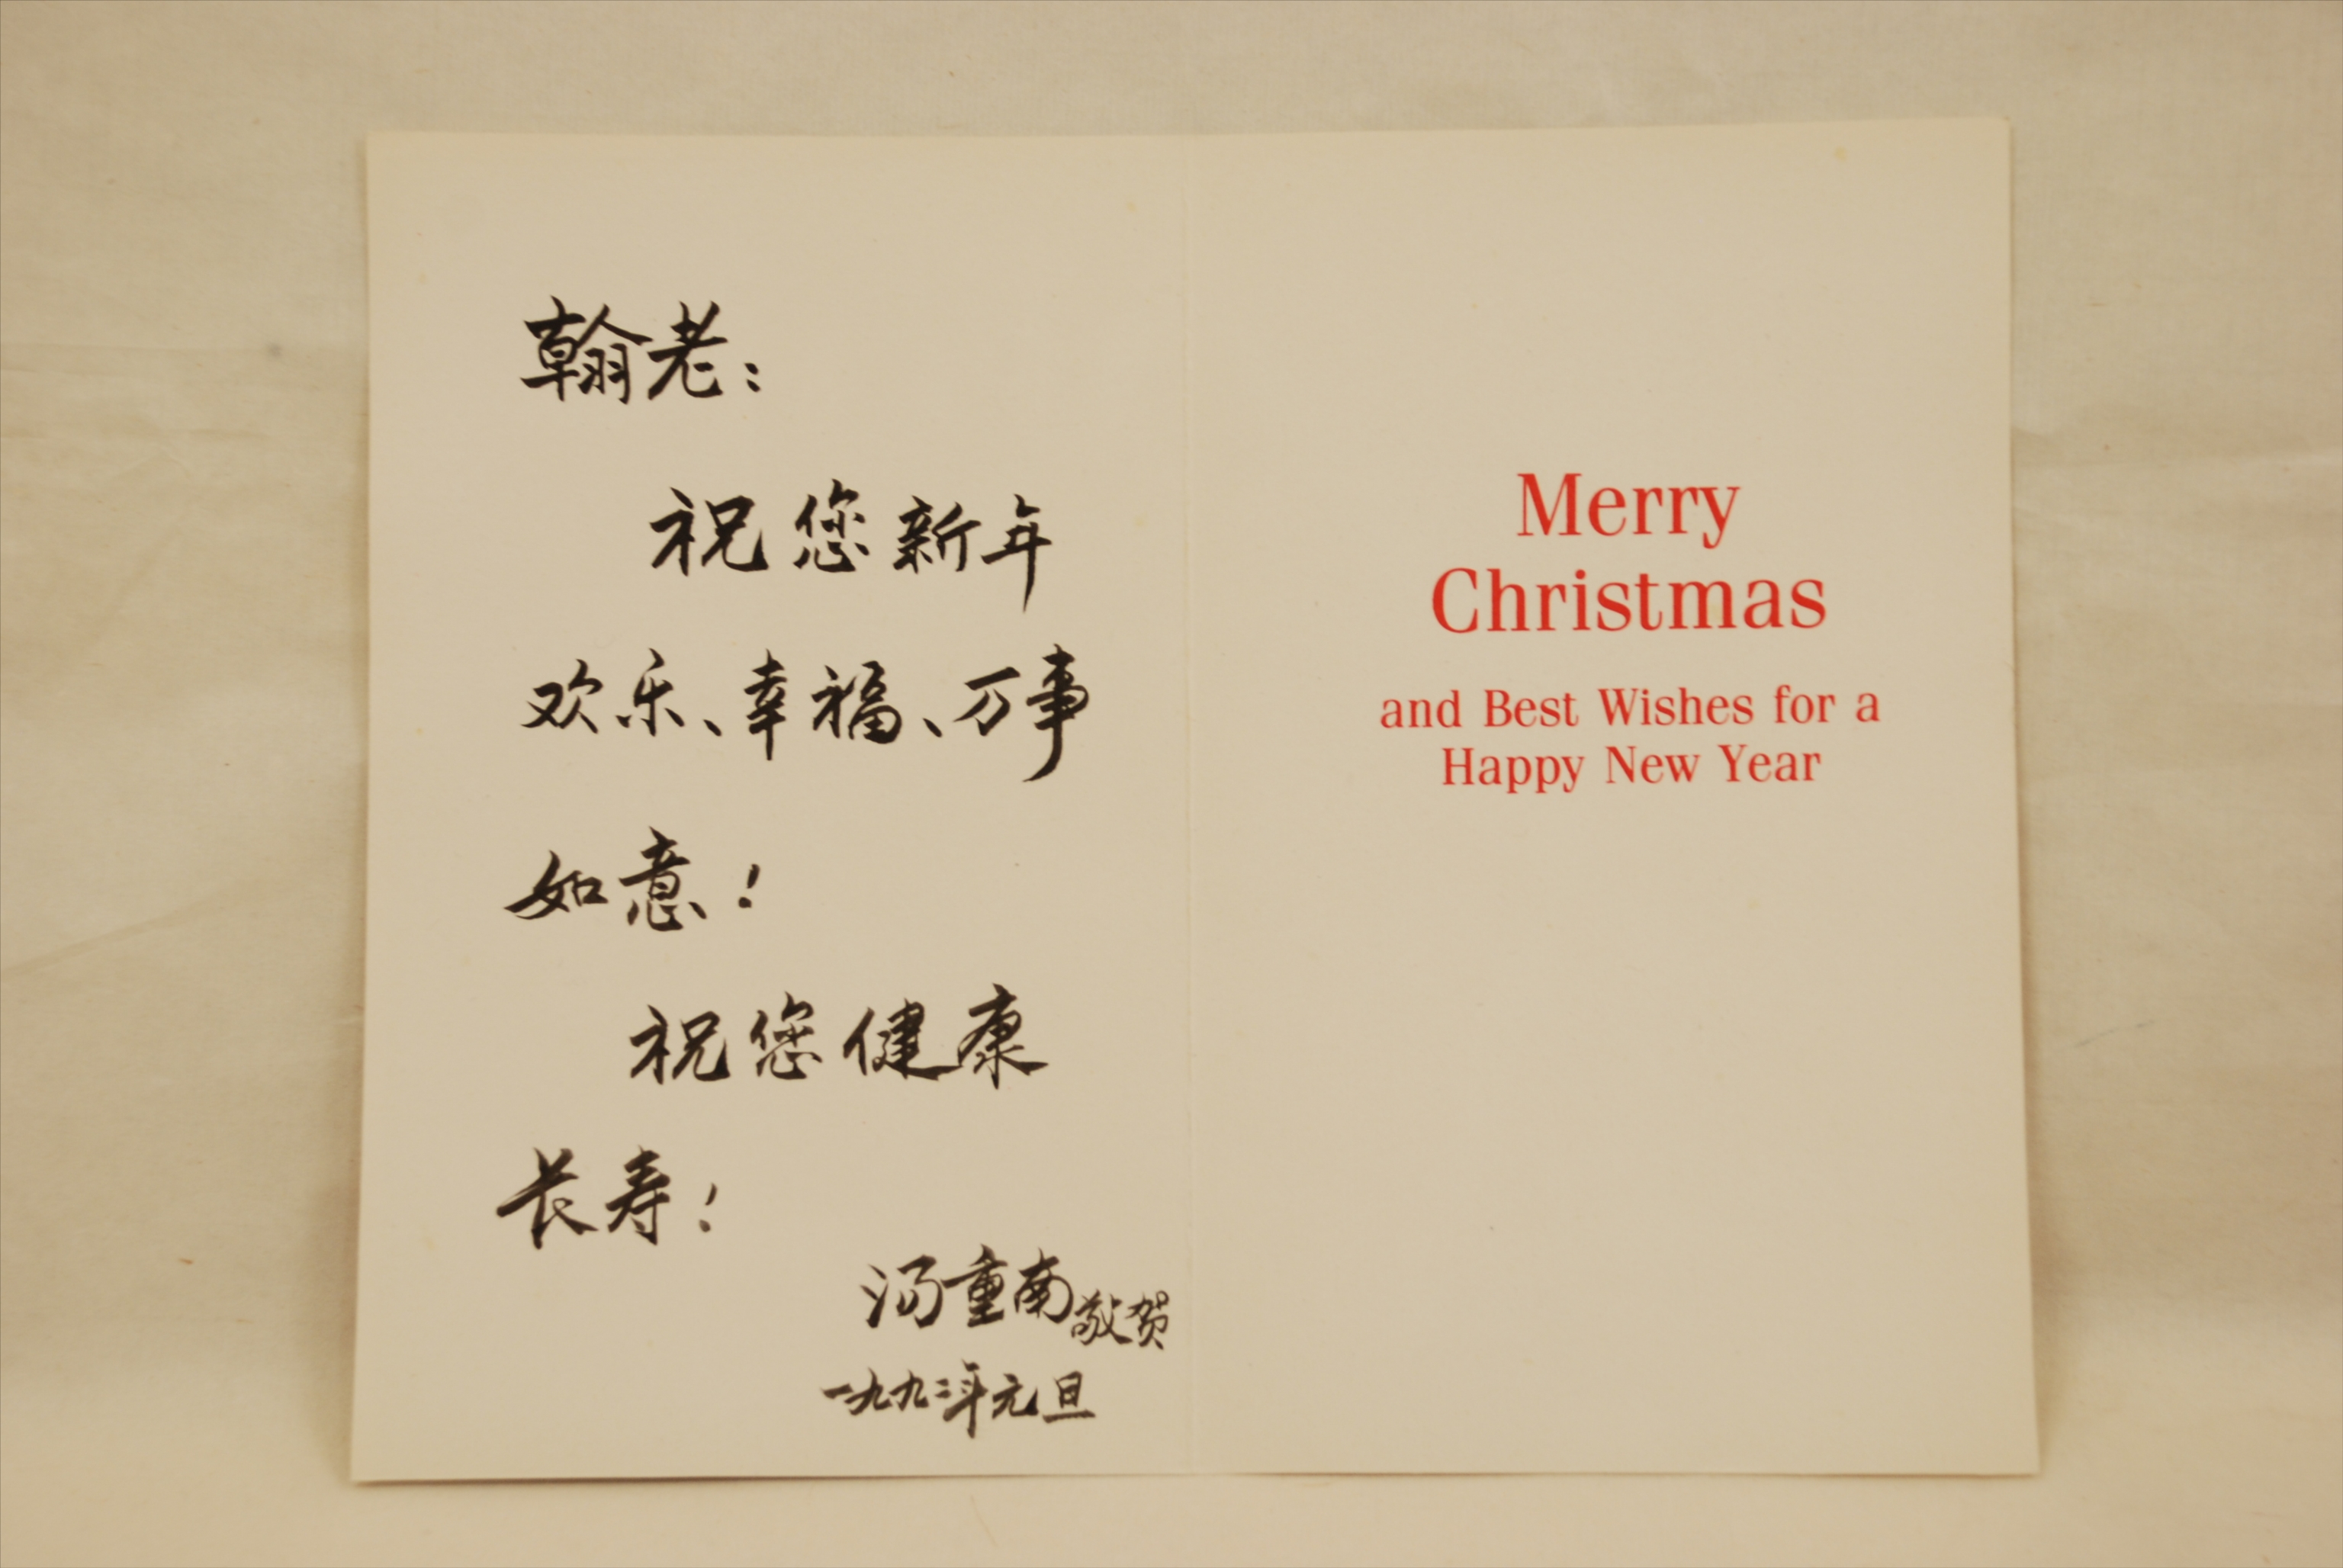 翰老：
祝您新年
欢乐、幸福、万事
如意！
祝您健康
长寿！
汤重南敬贺
一九九二年元旦
Merry
Christmas
and Best Wishes for a
Happy New Year